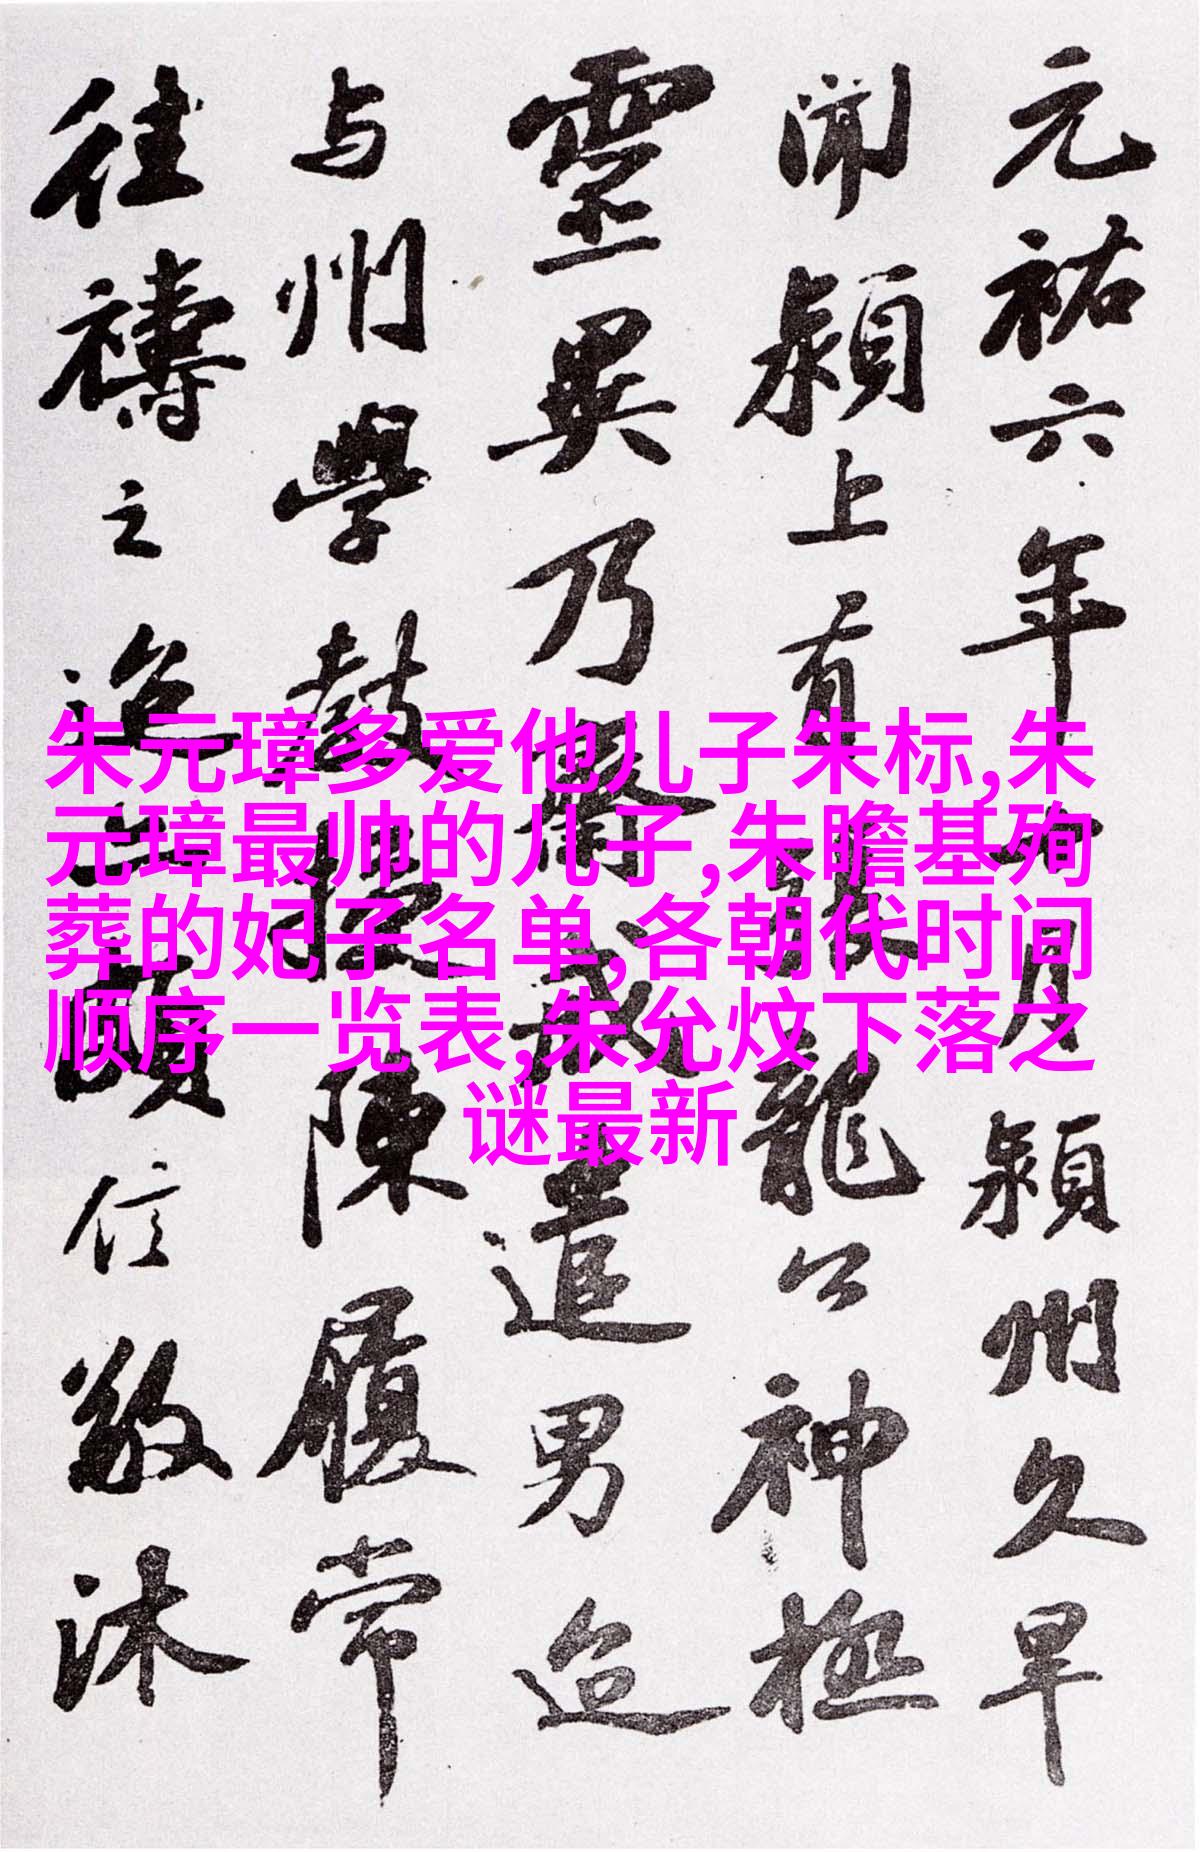 元祐六年十月潁州久旱
聞潁上有張龍公神極
靈異乃齋戒遣男迨
与州學教授陳履常
往禱之迨亦頗信敬沐
朱元璋多爱他儿子朱标,朱
元璋最帅的儿子,朱瞻基殉
葬的妃子名单,各朝代时间
顺序一览表,朱允炆下落之
谜最新